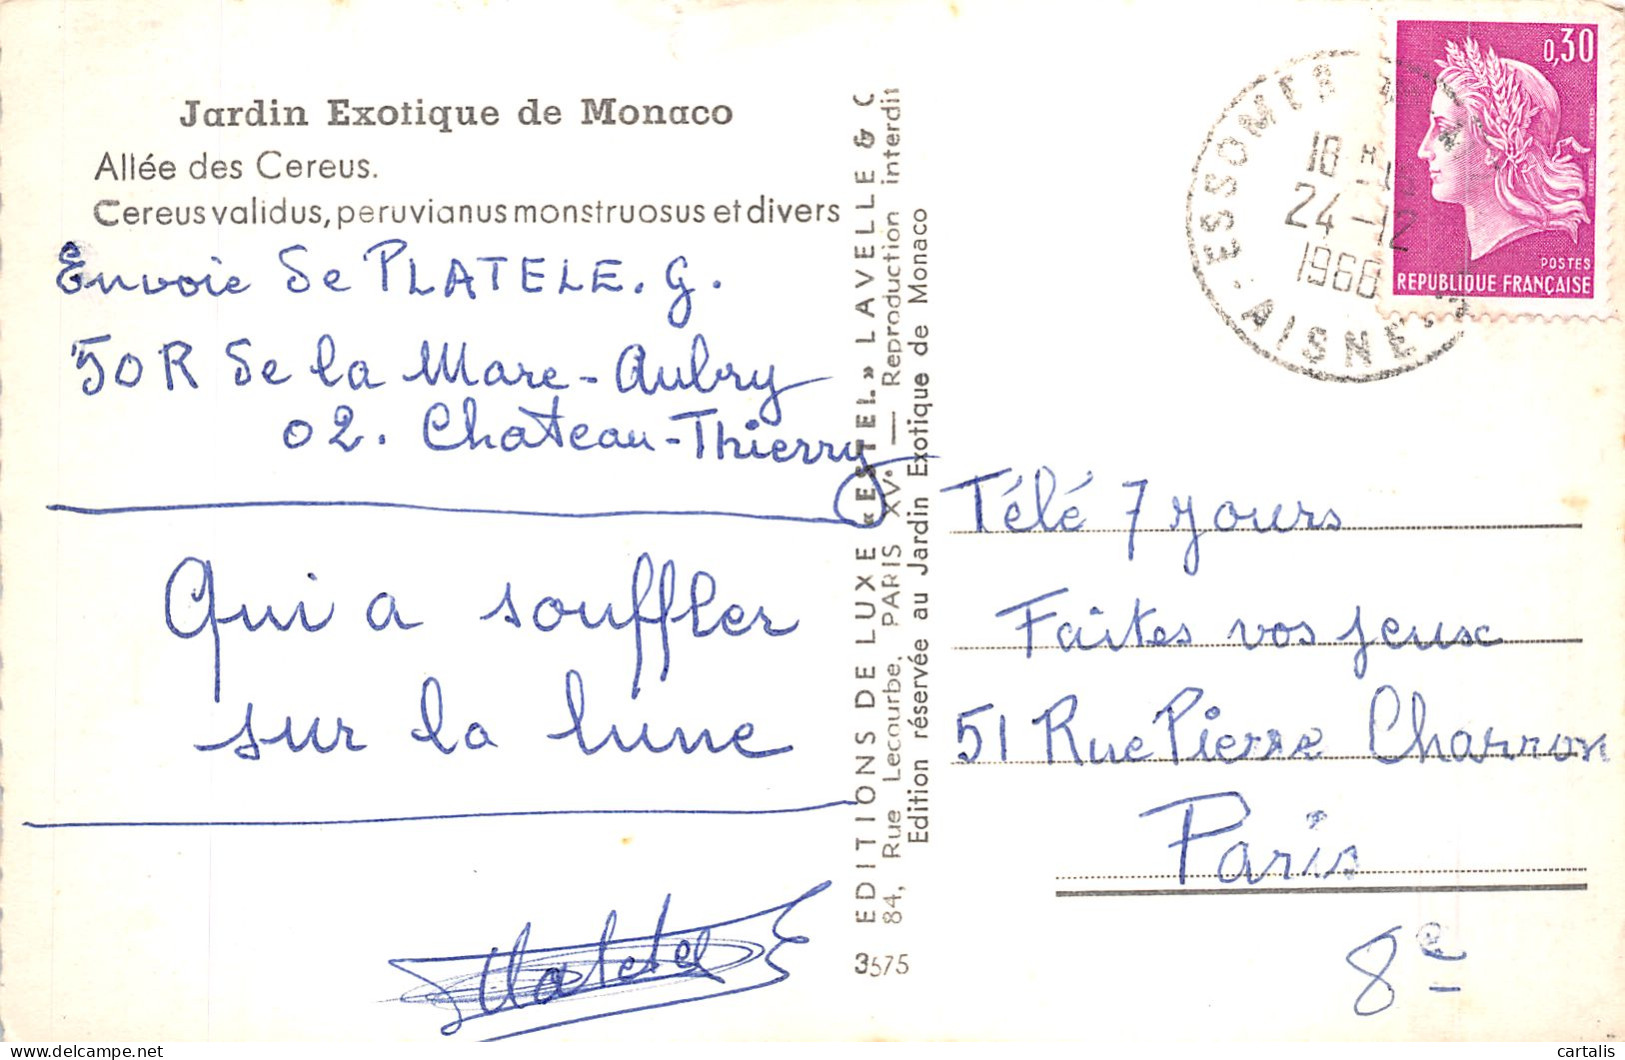 Jardin Exotique de Monaco
Allée des Cereus.
Cereus validus, peruvianus monstruosus et divers
Envoie de PLATELE. G.
50 R de la Mare-Aubry
02. Chateau-Thierry
Qui a souffler
sur la lune
Platele
3575
EDITIONS DE LUXE « ESTEL » LAVELLE & C
84, Rue Lecourbe, PARIS XVe — Reproduction interdit
Edition réservée au Jardin Exotique de Monaco
0,30
POSTES
REPUBLIQUE FRANÇAISE
ESSOMES
18 H
24-12
1968
AISNE
Télé 7 jours
Faites vos jeux
51 Rue Pierre Charron
Paris
8e
cartalis